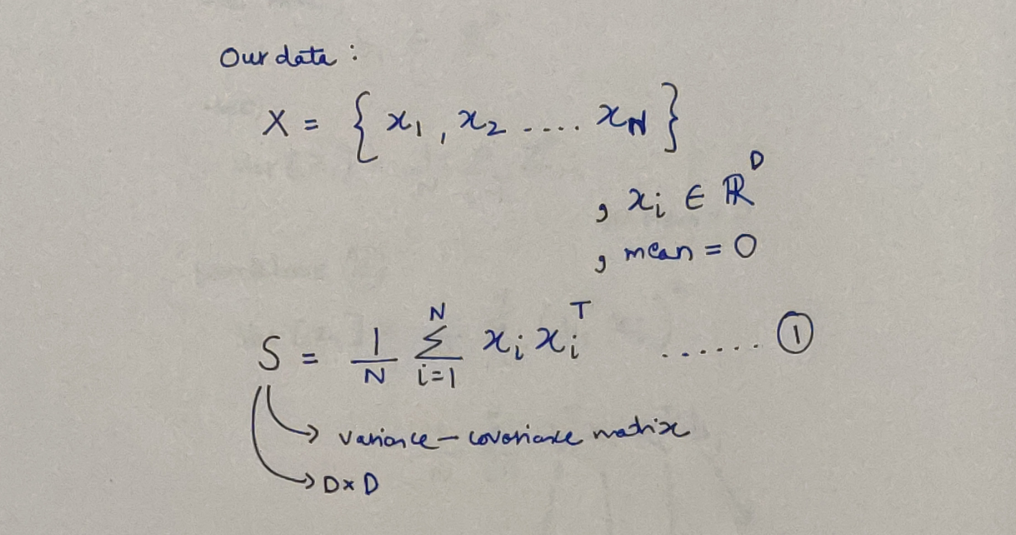 Our data :
X = { x₁ , x₂ .... x_N }
, xᵢ ∈ ℝᴰ
, mean = 0
S = 1/N Σ_{i=1}^{N} xᵢ xᵢᵀ ...... ①
→ variance – covariance matrix
→ D×D